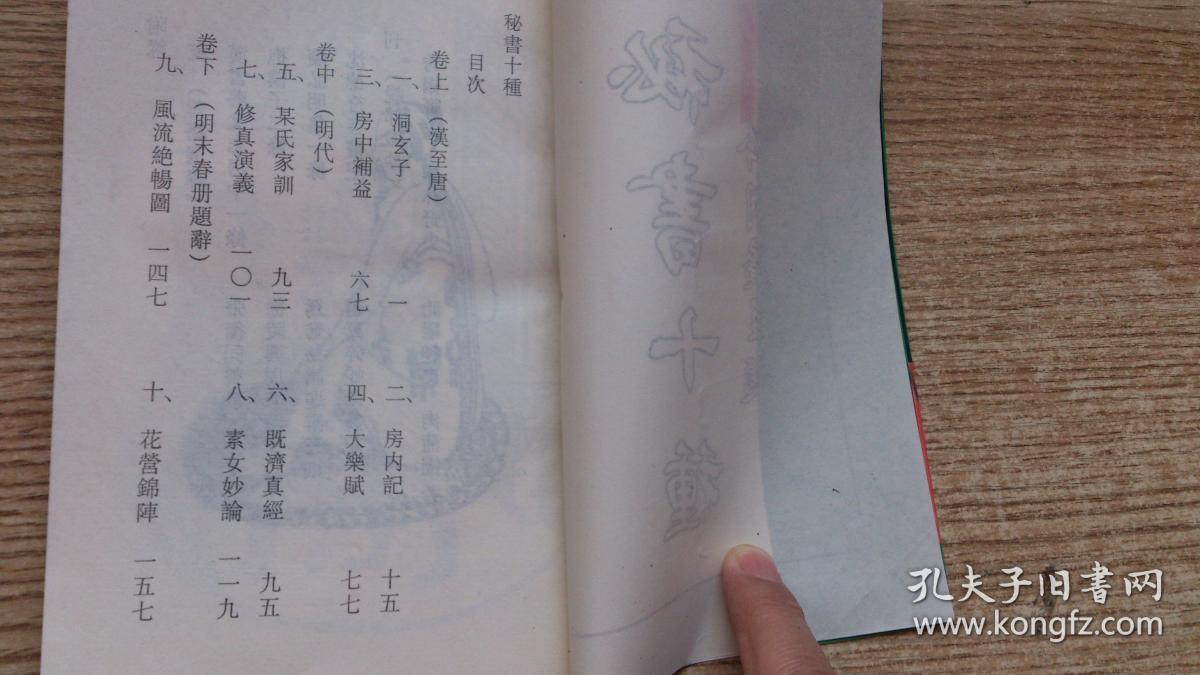 秘書十種
目次
卷上（漢至唐）
一、洞玄子 一 二、房内記 十五
三、房中補益 六七 四、大樂賦 七七
卷中（明代）
五、某氏家訓 九三 六、既濟真經 九五
七、修真演義 一〇一 八、素女妙論 一一九
卷下（明末春册題辭）
九、風流絶暢圖 一四七 十、花營錦陣 一五七
秘書十種
孔夫子旧书网
www.kongfz.com